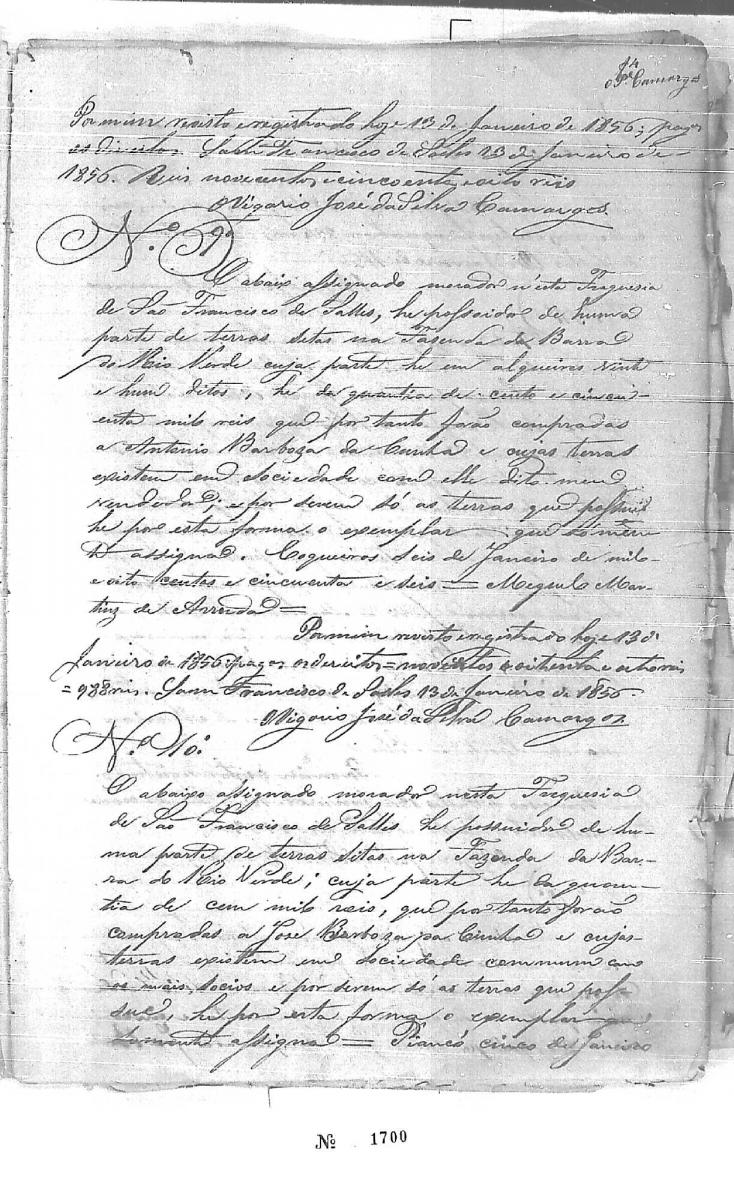 14
Camargos
Por mim revisto e registrado hoje 13 de Janeiro de 1856; pagou
os direitos. Sam Francisco de Salles 13 de Janeiro de
1856. Reis novecentos e cincoenta e oito reis
O Vigario José da Silva Camargos.
N.º 9º
O abaixo assignado morador n'esta Freguesia
de São Francisco de Salles, he possuidor de huma
parte de terras sitas na Fazenda da Barra
do Rio Verde cuja parte he em alqueires vinte
e hum ditos, he da quantia de cento e cincu-
enta mil reis que por tanto forão compradas
a Antonio Barboza da Cunha e cujas terras
existem em sociedade com elle dito meu
vendedor; e por serem só as terras que possue
he por esta forma o exemplar que sómen
te assigna. Coqueiros seis de Janeiro de mil
e oito centos e cincuenta e seis = Meguel Mar-
tinz de Arruda =
Por mim revisto e registrado hoje 13 de
Janeiro de 1856, pagou os direitos = novecentos e oitenta e oito reis
= 988 reis. Sam Francisco de Salles 13 de Janeiro de 1856.
O Vigario José da Silva Camargos.
N.º 10º
O abaixo assignado morador nesta Freguesia
de São Francisco de Salles he possuidor de hu-
ma parte de terras sitas na Fazenda da Bar-
ra do Rio Verde; cuja parte he da quan-
tia de cem mil reis, que por tanto forão
compradas a Jose Barboza da Cunha e cujas
terras existem em sociedade commum com
os mais socios e por serem só as terras que pos-
sue, he por esta forma o exemplar que
somente assigna = Piancó cinco de Janeiro
Nº 1700